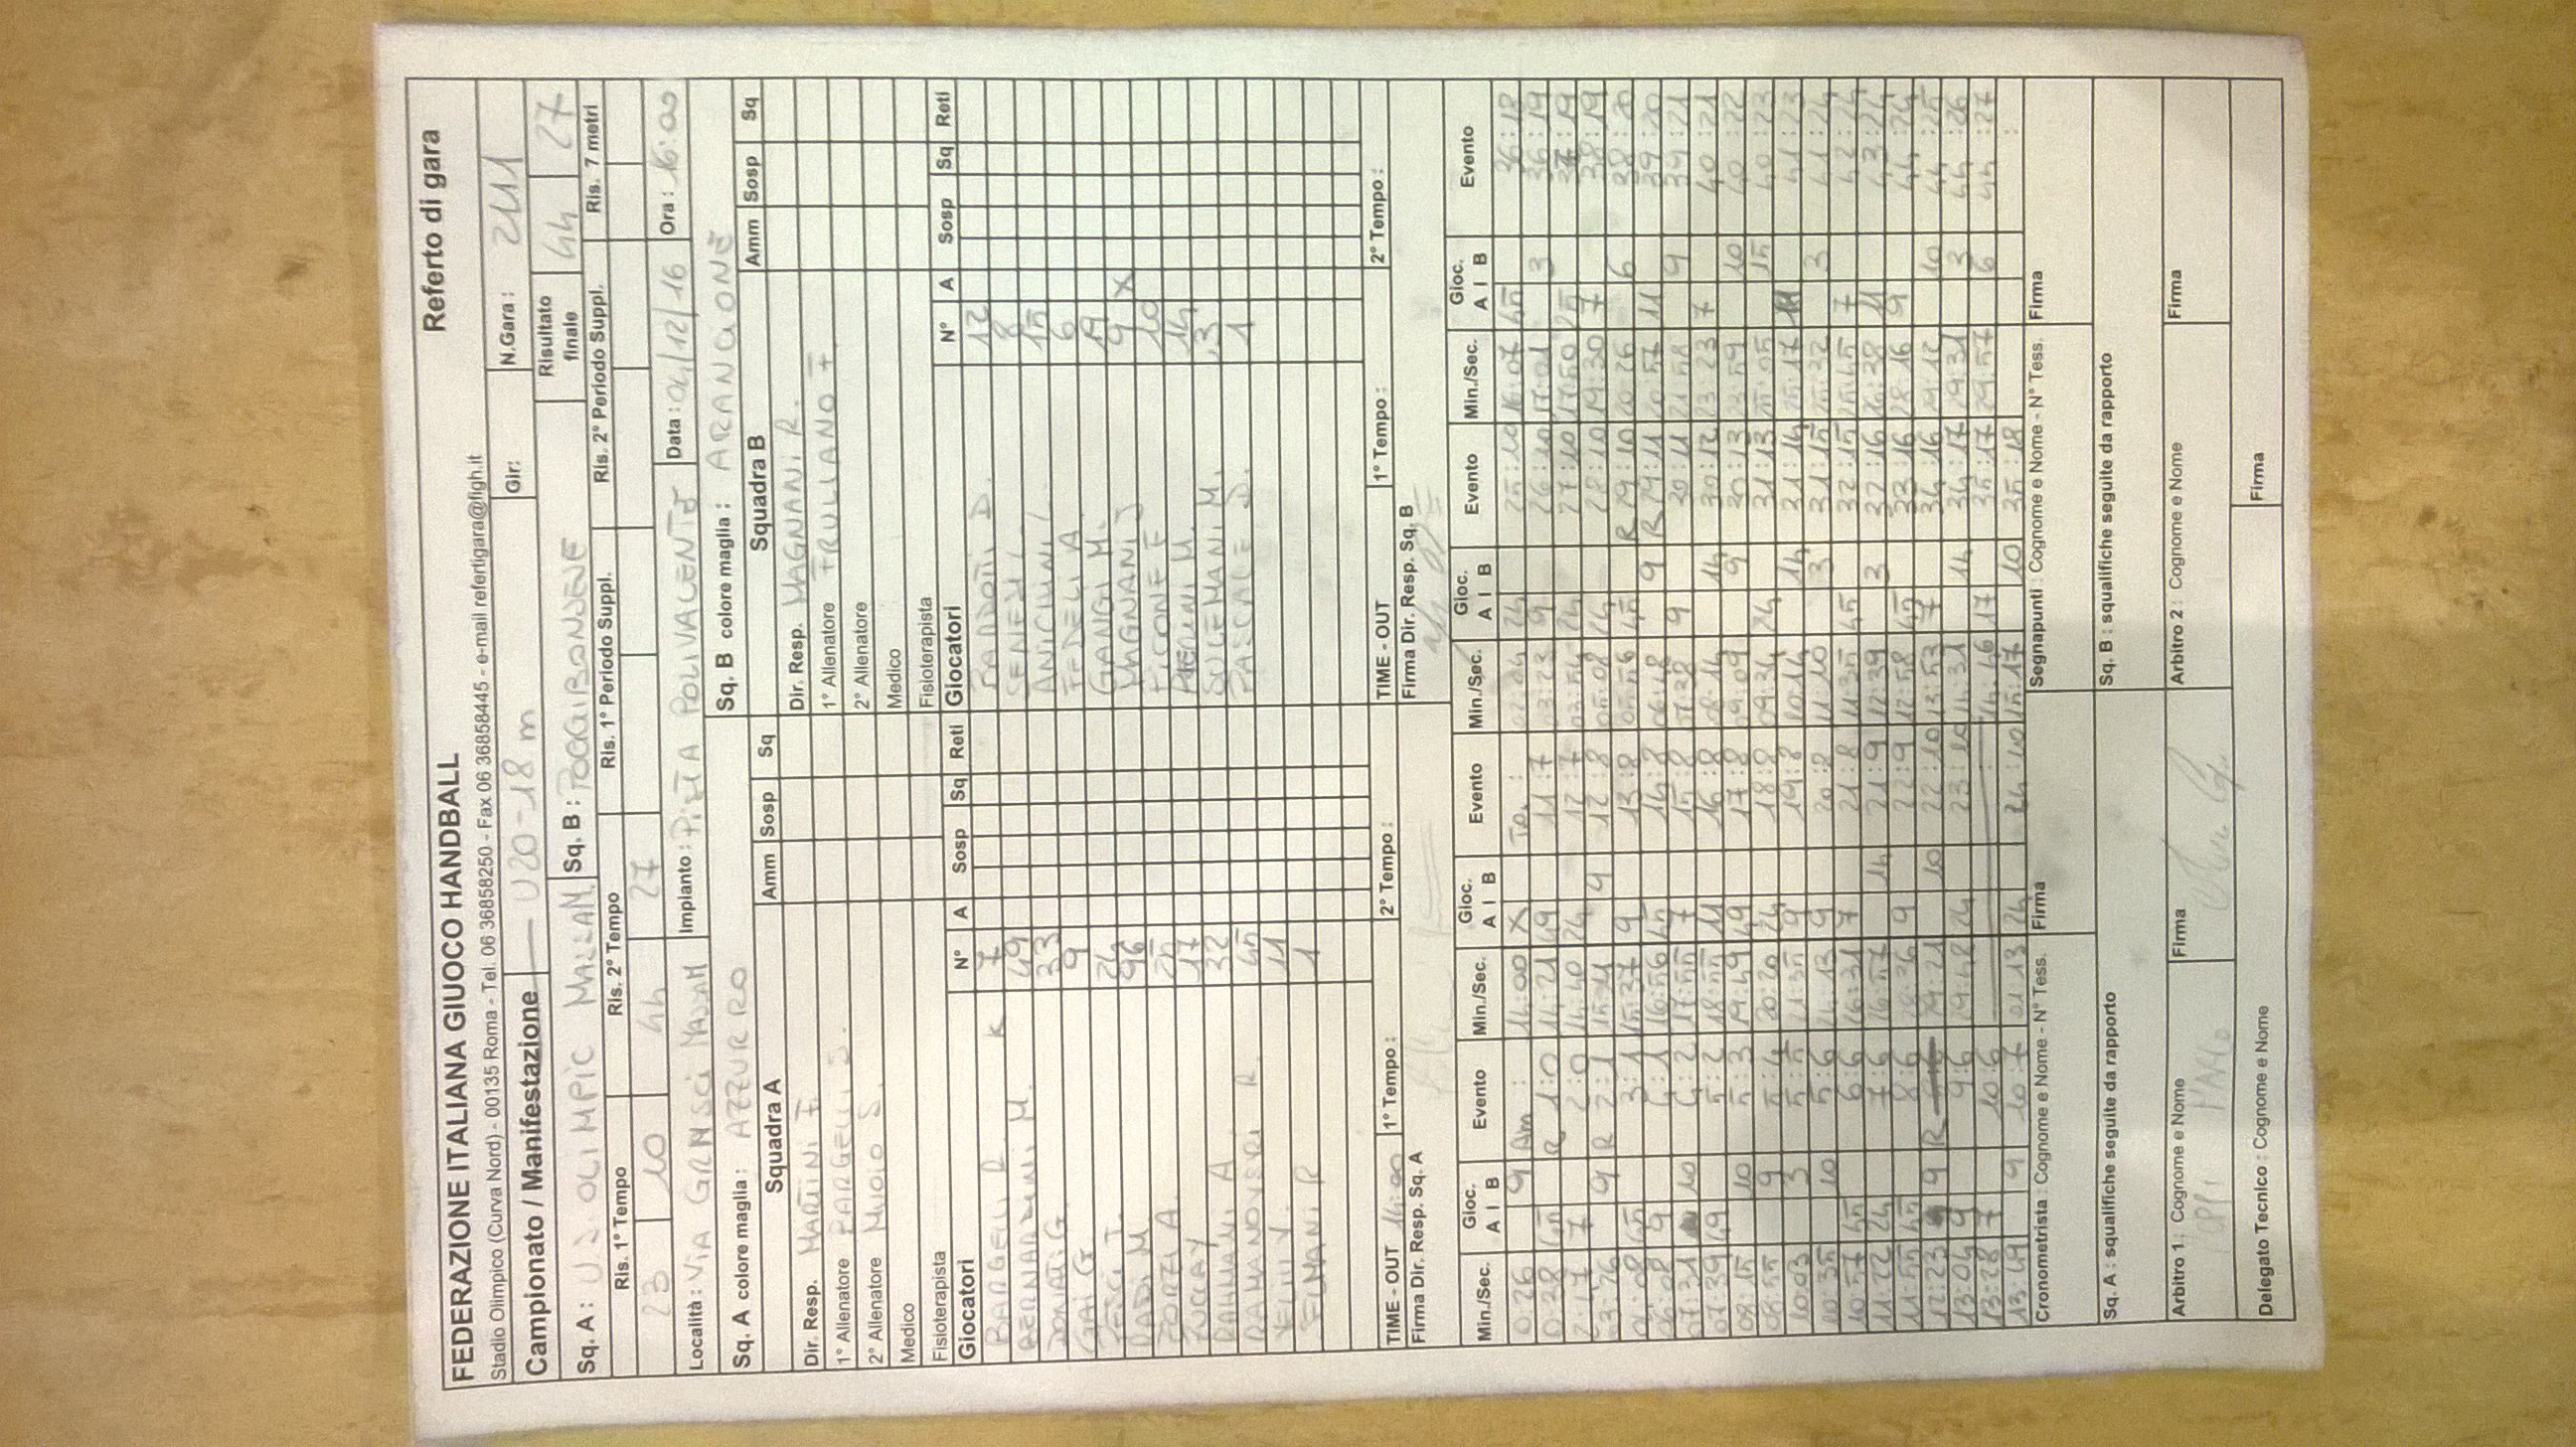 FEDERAZIONE ITALIANA GIUOCO HANDBALL Referto di gara
Stadio Olimpico (Curva Nord) - 00135 Roma - Tel. 06 36858250 - Fax 06 36858445 - e-mail refertigara@figh.it
Campionato / Manifestazione U20-18 m Gir: N.Gara : 2411
Sq. A : U.S OLIMPIC MASSAM. Sq. B : POGGIBONSESE Risultato finale 44 27
Ris. 1° Tempo Ris. 2° Tempo Ris. 1° Periodo Suppl. Ris. 2° Periodo Suppl. Ris. 7 metri
23 10 44 27
Località : VIA GRAMSCI Impianto : POLIVALENTE Data : 04/12/16 Ora : 16:00
Sq. A colore maglia : AZZURRO Sq. B colore maglia : ARANCIONE
Squadra A Amm Sosp Sq Squadra B Amm Sosp Sq
Dir. Resp. MARTINI F Dir. Resp. MAGNANI R.
1° Allenatore BARGELLI D. 1° Allenatore TRULLIANO F.
2° Allenatore MUOIO S. 2° Allenatore
Medico Medico
Fisioterapista Fisioterapista
Giocatori N° A Sosp Sq Reti Giocatori N° A Sosp Sq Reti
BARGELLI D. K 7 12
BERNARDINI M. 49 8
DONATI G. 33 ANICHINI L. 15
9 FEDELI A. 6
24 GANGI M. 19
RADI M. 96 MAGNANI J 9 X
FORZI A. 25 10
17 14
RAHMANI A 32 SULEMANI M. 3
R. 45 PASCALE D. 1
11
1
TIME - OUT 1° Tempo : 2° Tempo : TIME - OUT 1° Tempo : 2° Tempo :
Firma Dir. Resp. Sq. A Firma Dir. Resp. Sq. B
Min./Sec. Gioc. A I B Evento Min./Sec. Gioc. A I B Evento Min./Sec. Gioc. A I B Evento Min./Sec. Gioc. A I B Evento
0:26 9 Am : 14:00 X T.O. : 02:04 24 25:10 16:07 45 36:18
0:38 45 R 1:0 14:21 49 11:7 03:23 9 26:10 17:01 3 36:19
2:47 7 2:0 14:40 24 12:7 03:54 24 27:10 17:50 25 37:19
3:26 9 R 2:1 15:11 9 12:8 05:08 24 28:10 19:30 7 38:19
04:08 45 3:1 15:37 9 13:8 05:56 45 R 29:10 20:26 6 38:20
06:08 9 4:1 16:56 45 14:8 06:48 9 R 29:11 20:57 11 39:20
07:31 10 4:2 17:55 7 15:8 07:38 9 30:11 21:58 9 39:21
07:39 49 5:2 18:55 11 16:8 08:14 14 30:12 23:23 7 40:21
08:15 10 5:3 19:49 49 17:8 09:09 9 30:13 23:59 10 40:22
08:55 9 5:4 20:20 24 18:8 09:34 24 31:13 25:05 15 40:23
10:03 3 5:5 21:35 9 19:8 10:14 14 31:14 25:17 11 41:23
10:35 10 5:6 24:13 9 20:8 11:10 3 31:15 25:32 3 41:24
10:57 45 6:6 26:31 7 21:8 11:35 45 32:15 25:45 7 42:24
11:22 24 7:6 26:57 14 21:9 12:39 3 32:16 26:38 11 43:24
11:55 45 8:6 28:26 9 22:9 12:58 45 33:16 28:16 9 44:24
12:23 9 R 29:21 10 22:10 13:53 7 34:16 29:12 10 44:25
13:04 9 9:6 29:48 24 23:10 14:31 14 34:17 29:31 3 44:26
13:28 7 10:6 14:46 17 35:17 29:57 6 44:27
13:49 9 10:7 01:13 24 24:10 15:17 10 35:18 :
Cronometrista : Cognome e Nome - N° Tess. Firma Segnapunti : Cognome e Nome - N° Tess. Firma
Sq. A : squalifiche seguite da rapporto Sq. B : squalifiche seguite da rapporto
Arbitro 1 : Cognome e Nome Firma Arbitro 2 : Cognome e Nome Firma
Delegato Tecnico : Cognome e Nome Firma